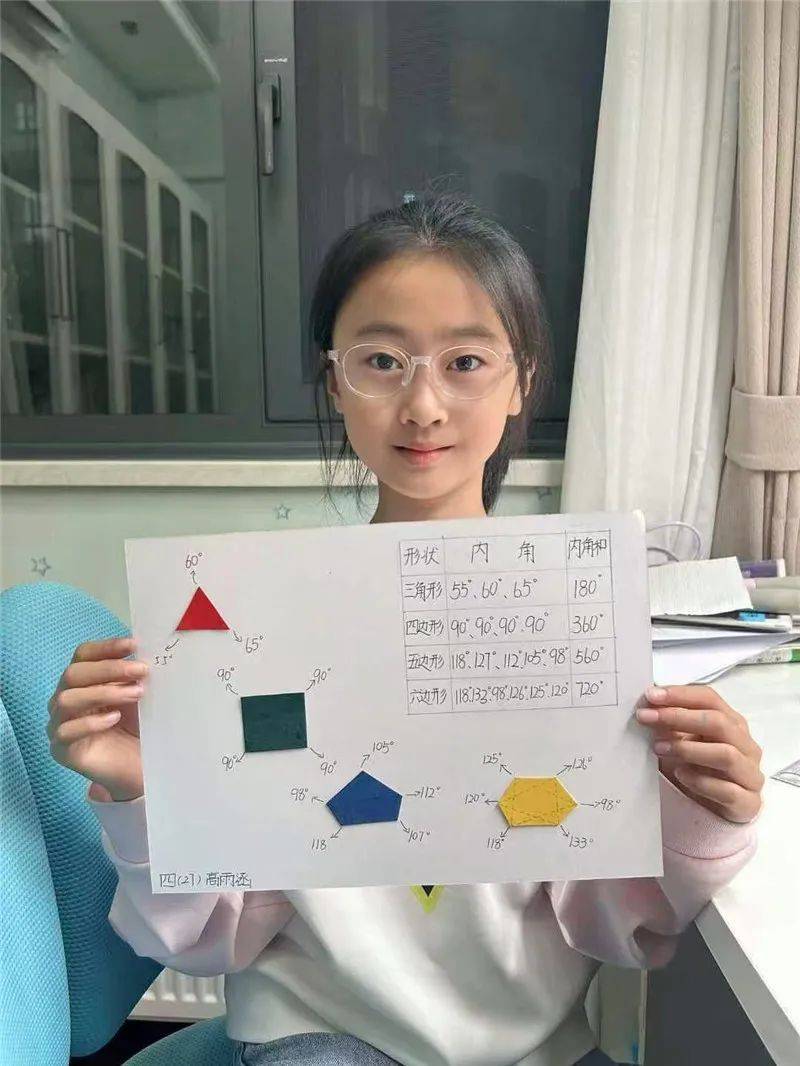 形状 内角 内角和
三角形 55°、60°、65° 180°
四边形 90°、90°、90°、90° 360°
五边形 118°、127°、112°、105°、98° 560°
六边形 118°、133°、98°、126°、125°、120° 720°
60°
55° 65°
90° 90°
90° 90°
105°
98° 112°
118 107°
125° 126°
120° 98°
118° 133°
四(27) 高雨